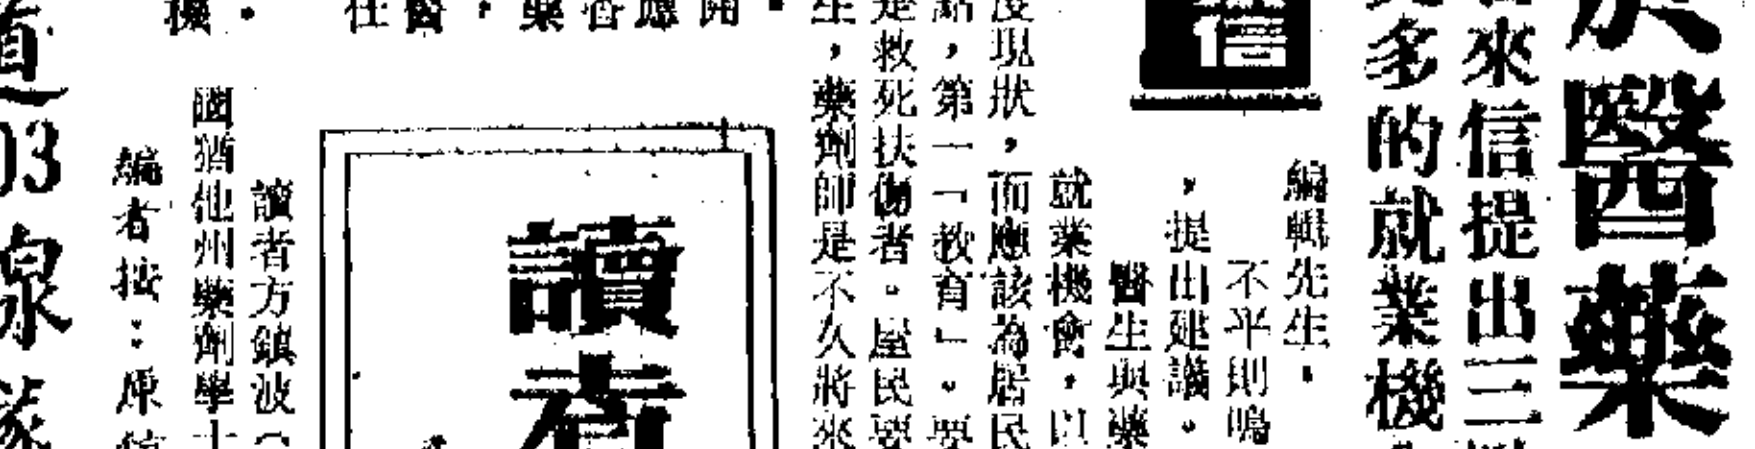 醫藥
來信提出三
多的就業機
編輯先生，
不平則鳴
，提出建議。
醫生與藥
就業機會，以
現狀，而應該為居民
點，第一「教育」。要
是救死扶傷者。屋民要
生，藥劑師是不久將來
信
讀者
開
應
者
藥
，
醫
任
機。
讀者方鎮波（
國猶他州藥劑學士
編者按：原信
道03線